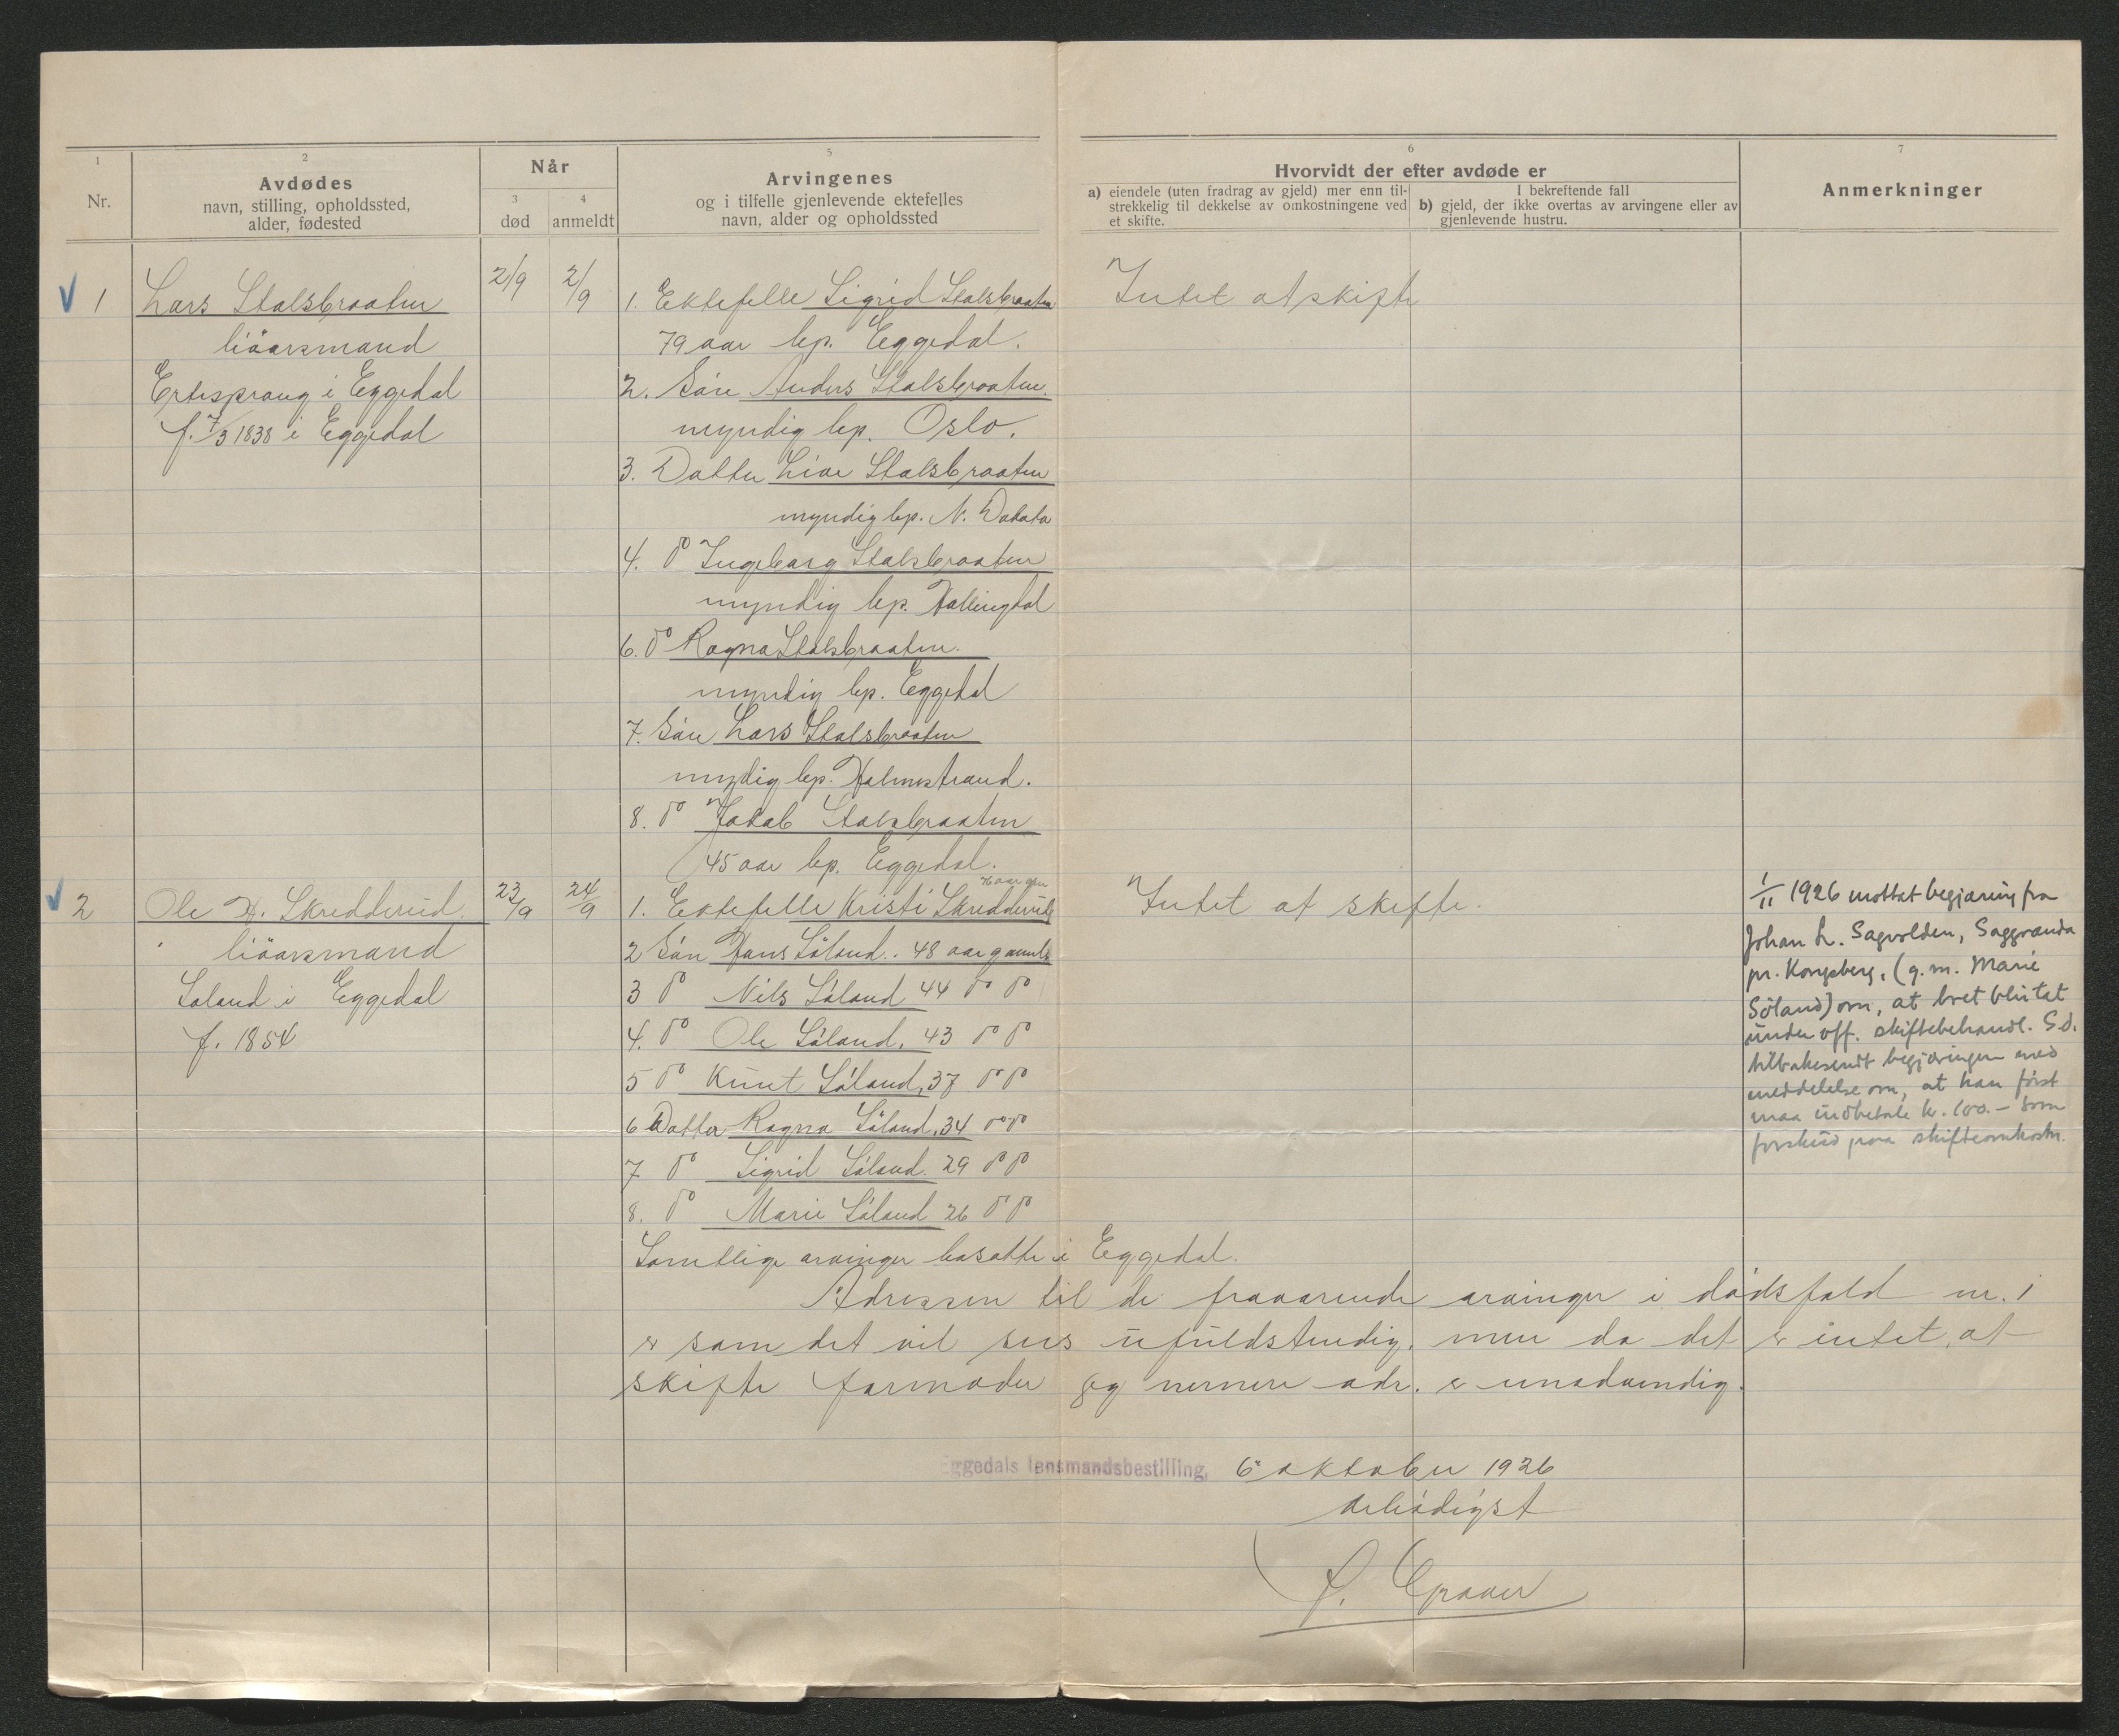 1 2 Når 5 6 7
Nr. Avdødes
navn, stilling, opholdssted,
alder, fødested
3 død 4 anmeldt
Arvingenes
og i tilfelle gjenlevende ektefelles
navn, alder og opholdssted
Hvorvidt der efter avdøde er
a) eiendele (uten fradrag av gjeld) mer enn til-
strekkelig til dekkelse av omkostningene ved
et skifte.
I bekreftende fall
b) gjeld, der ikke overtas av arvingene eller av
gjenlevende hustru.
Anmerkninger
1 Lars Stalsbraaten 2/9 2/9
liöarsmand
Ertesprang i Eggedal
f. 7/3 1838 i Eggedal
1. Ektefelle Sigrid Stalsbraaten
79 aar bp. Eggedal.
2. Sön Anders Stalsbraaten.
myndig bp. Oslo.
3. Datter Live Stalsbraaten
myndig bp. N. Dakota
4. do Ingeborg Stalsbraaten
myndig bp. Hallingdal
6. do Ragna Stalsbraaten.
myndig bp. Eggedal
7. Sön Lars Stalsbraaten
myndig bp. Holmestrand.
8. do Jakob Stalsbraaten
45 aar bp. Eggedal.
Intet at skifte
2 Ole H. Skredderud. 23/9 24/9
liöarsmand
Söland i Eggedal
f. 1854
1. Ektefelle Kristi Skredderud
2 Sön Hans Söland.. 48 aar gamle
3 do Nils Söland 44 do do
4. do Ole Söland, 43 do do
5 do Knut Söland, 37 do do
6 Datter Ragna Söland, 34 do do
7 do Sigrid Söland. 29 do do
8. do Marie Söland 26 do do
Intet at skifte.
1/11 1926 mottat begjæring fra
Johan L. Sagvolden, Saggranda
pr. Kongsberg, (g.m. Marie
Söland) om, at boet blir tat
under off. skiftebehandl. S.d.
tilbakesendt begjæringen med
meddelelse om, at han först
maa indbetale kr. 100.- som
forskud paa skifteomkostn.
Samtlige arvinger bosatte i Eggedal.
Adressen til de fraværende arvinger i dödsfald nr. 1
er som det vil sees ufuldstendig, men da det er intet at
skifte formoder jeg nermere adr. er unödvendig.
Eggedals lensmandsbestilling, 6 oktober 1926
ærbödigst